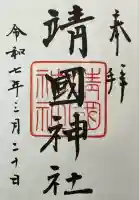 奉拝
靖國神社
令和七年三月二十日
靖國神社